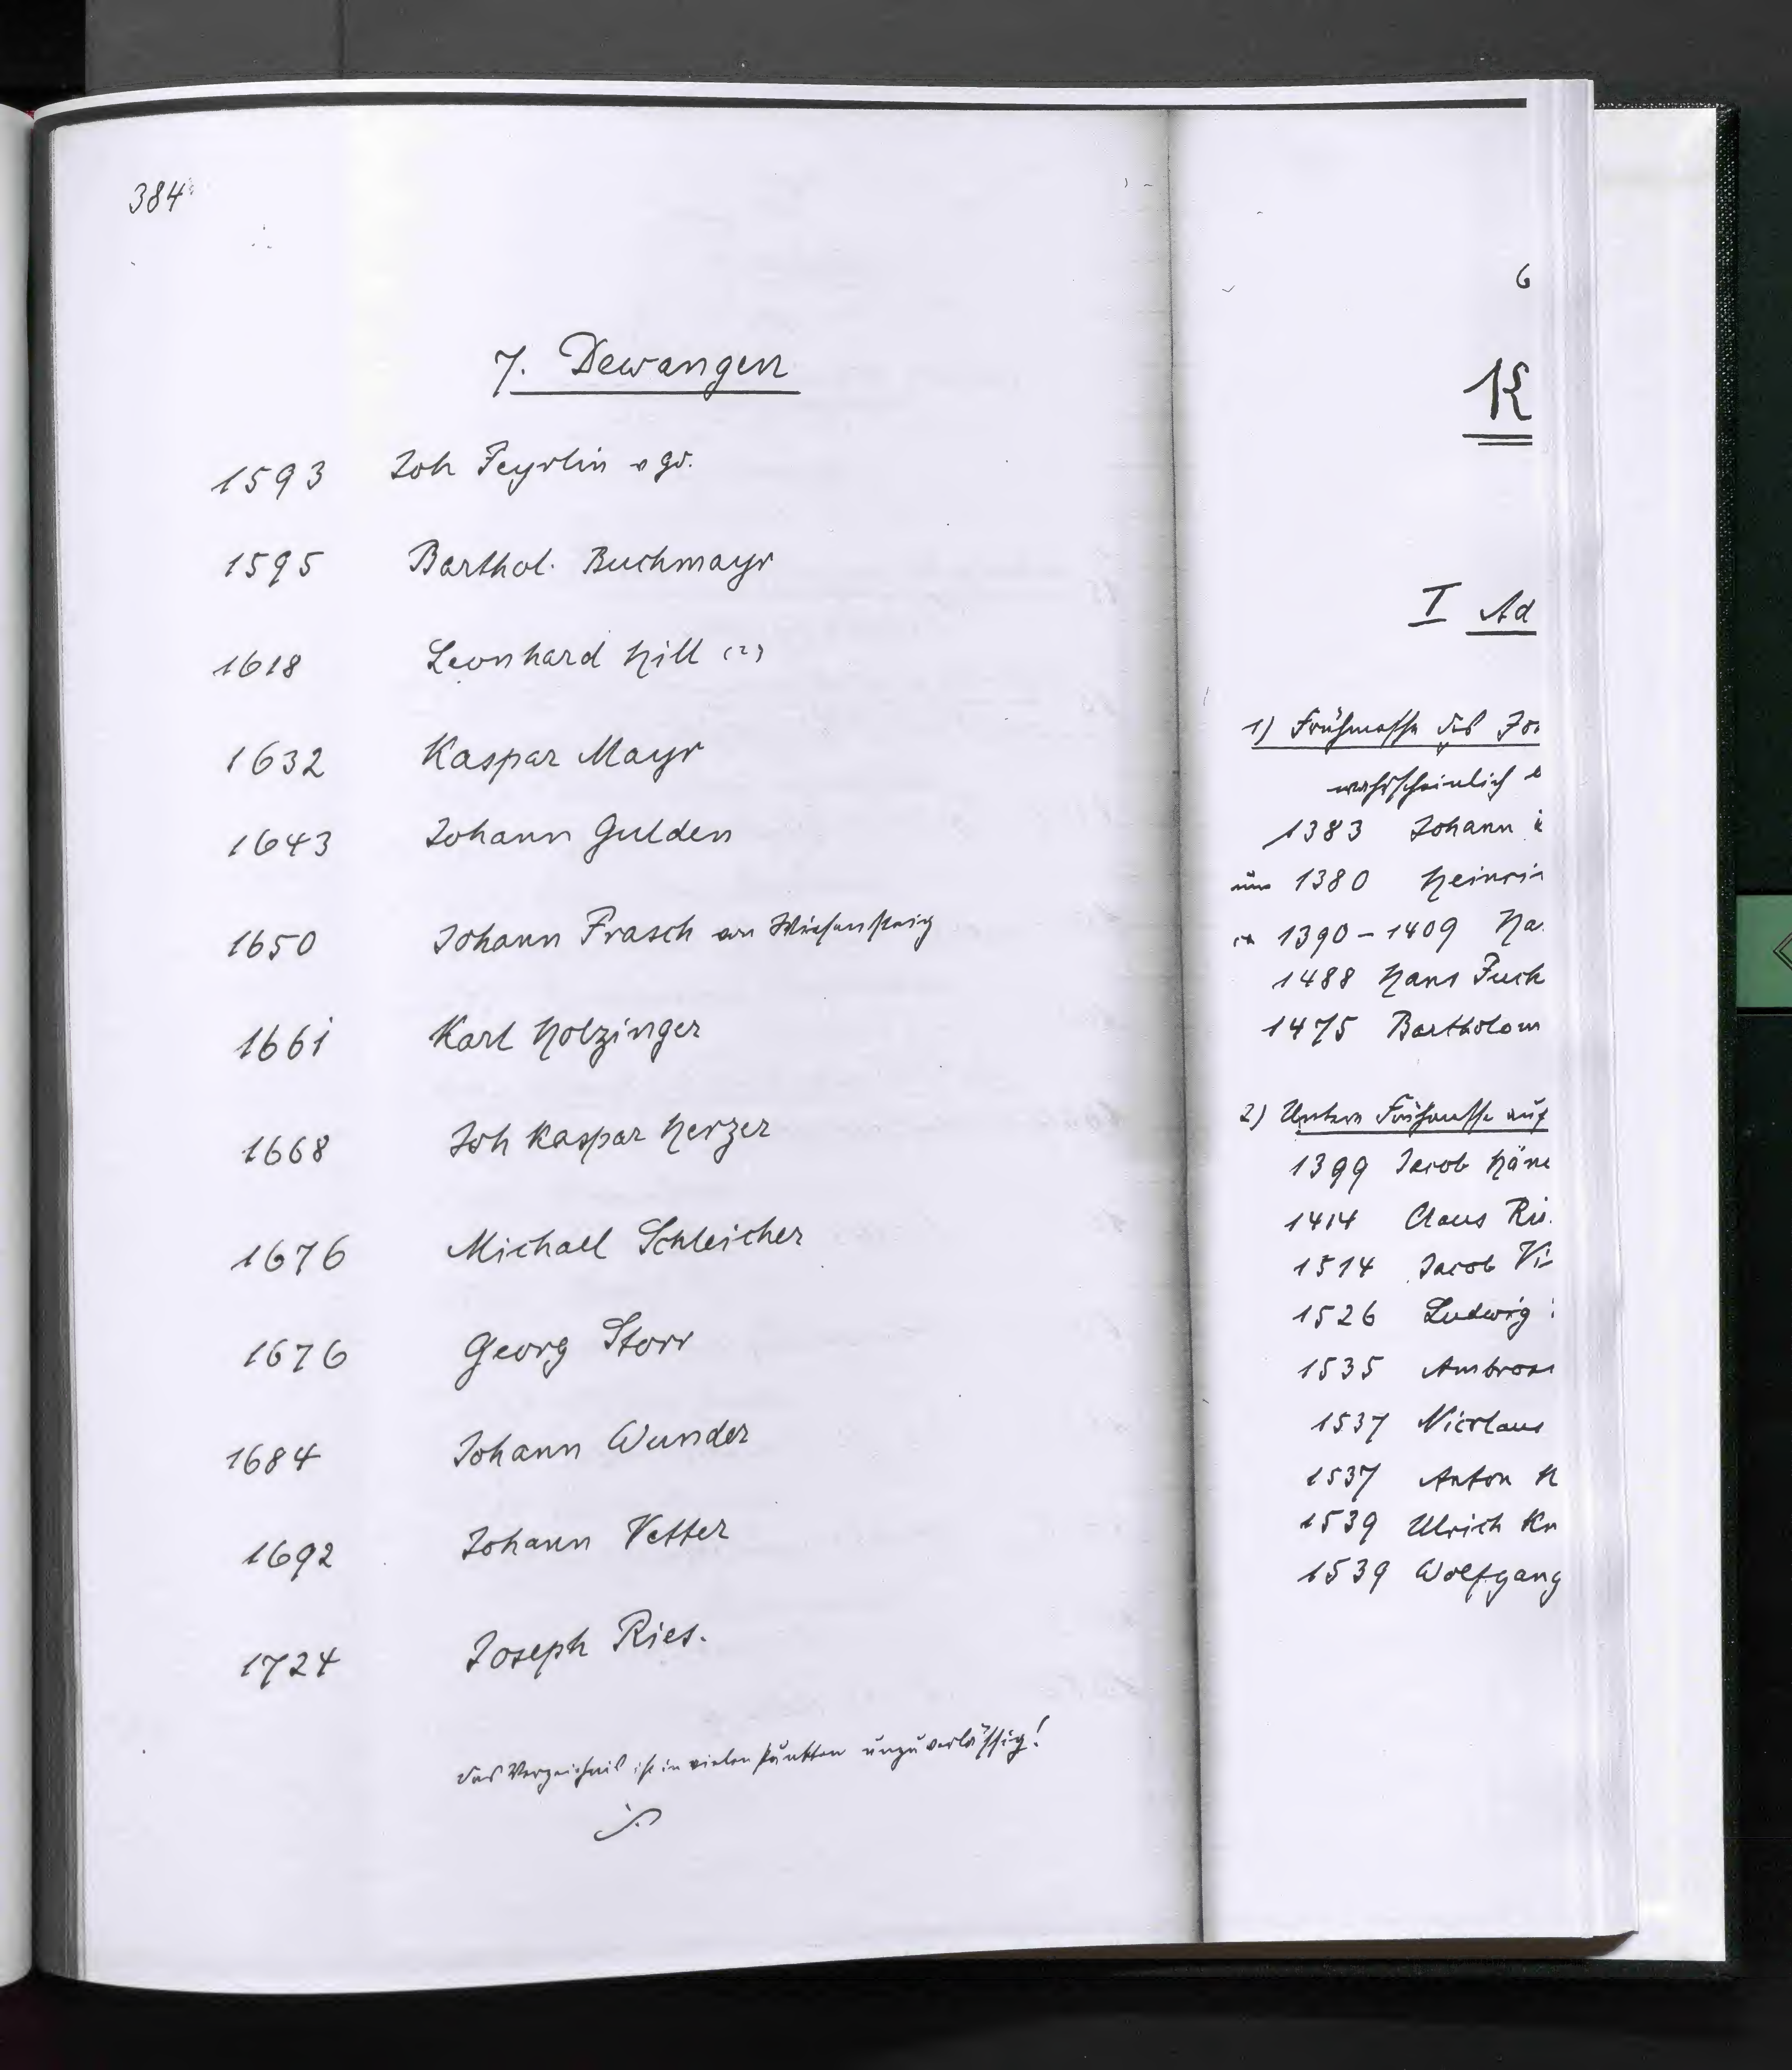 384
7. Dewangen
1593 Joh Feyrlin v gd.
1595 Barthol. Buchmayr
1618 Leonhard Hill (?)
1632 Kaspar Mayr
1643 Johann Gulden
1650 Johann Frasch von Wiesensteig
1661 Karl Holzinger
1668 Joh Kaspar Herzer
1676 Michael Schleicher
1676 Georg Storr
1684 Johann Wunder
1692 Johann Vetter
1724 Joseph Ries.
das Verzeichnis ist in vielen Punkten unzuverlässig!
6
K
I Ad
1) Frühmesse des
wahrscheinlich
1383 Johann
um 1380 Heinri
1390-1409 Ha
1488 Hans Fuch
1475 Bartholom
2) Untere Frühmesse auf
1399 Jacob Häm
1414 Claus Rü
1514 Jacob Vi
1526 Ludwig
1535 Ambros
1537 Nicolaus
1537 Anton H
1539 Ulrich Kn
1539 Wolfgang